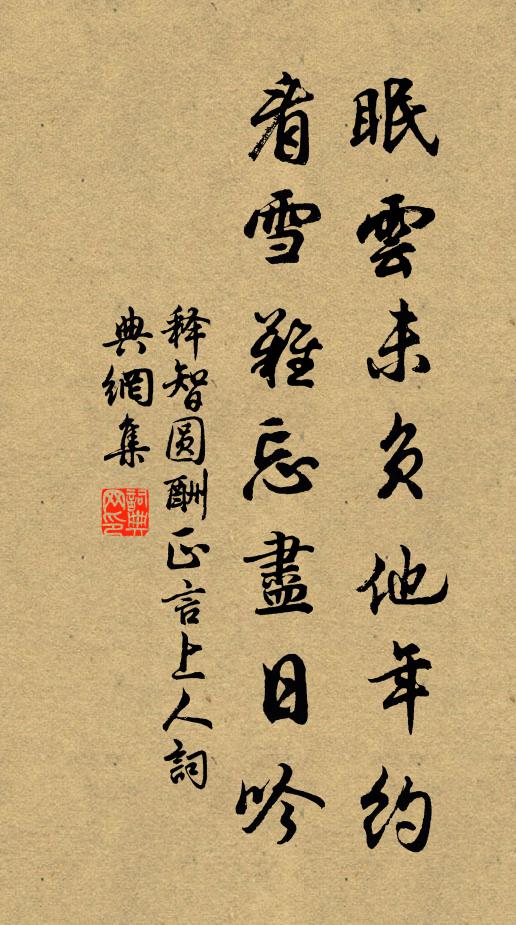 眠雲未負他年約
看雪難忘盡日吟
释智圆酬正言上人詞
典網集
詞典網印